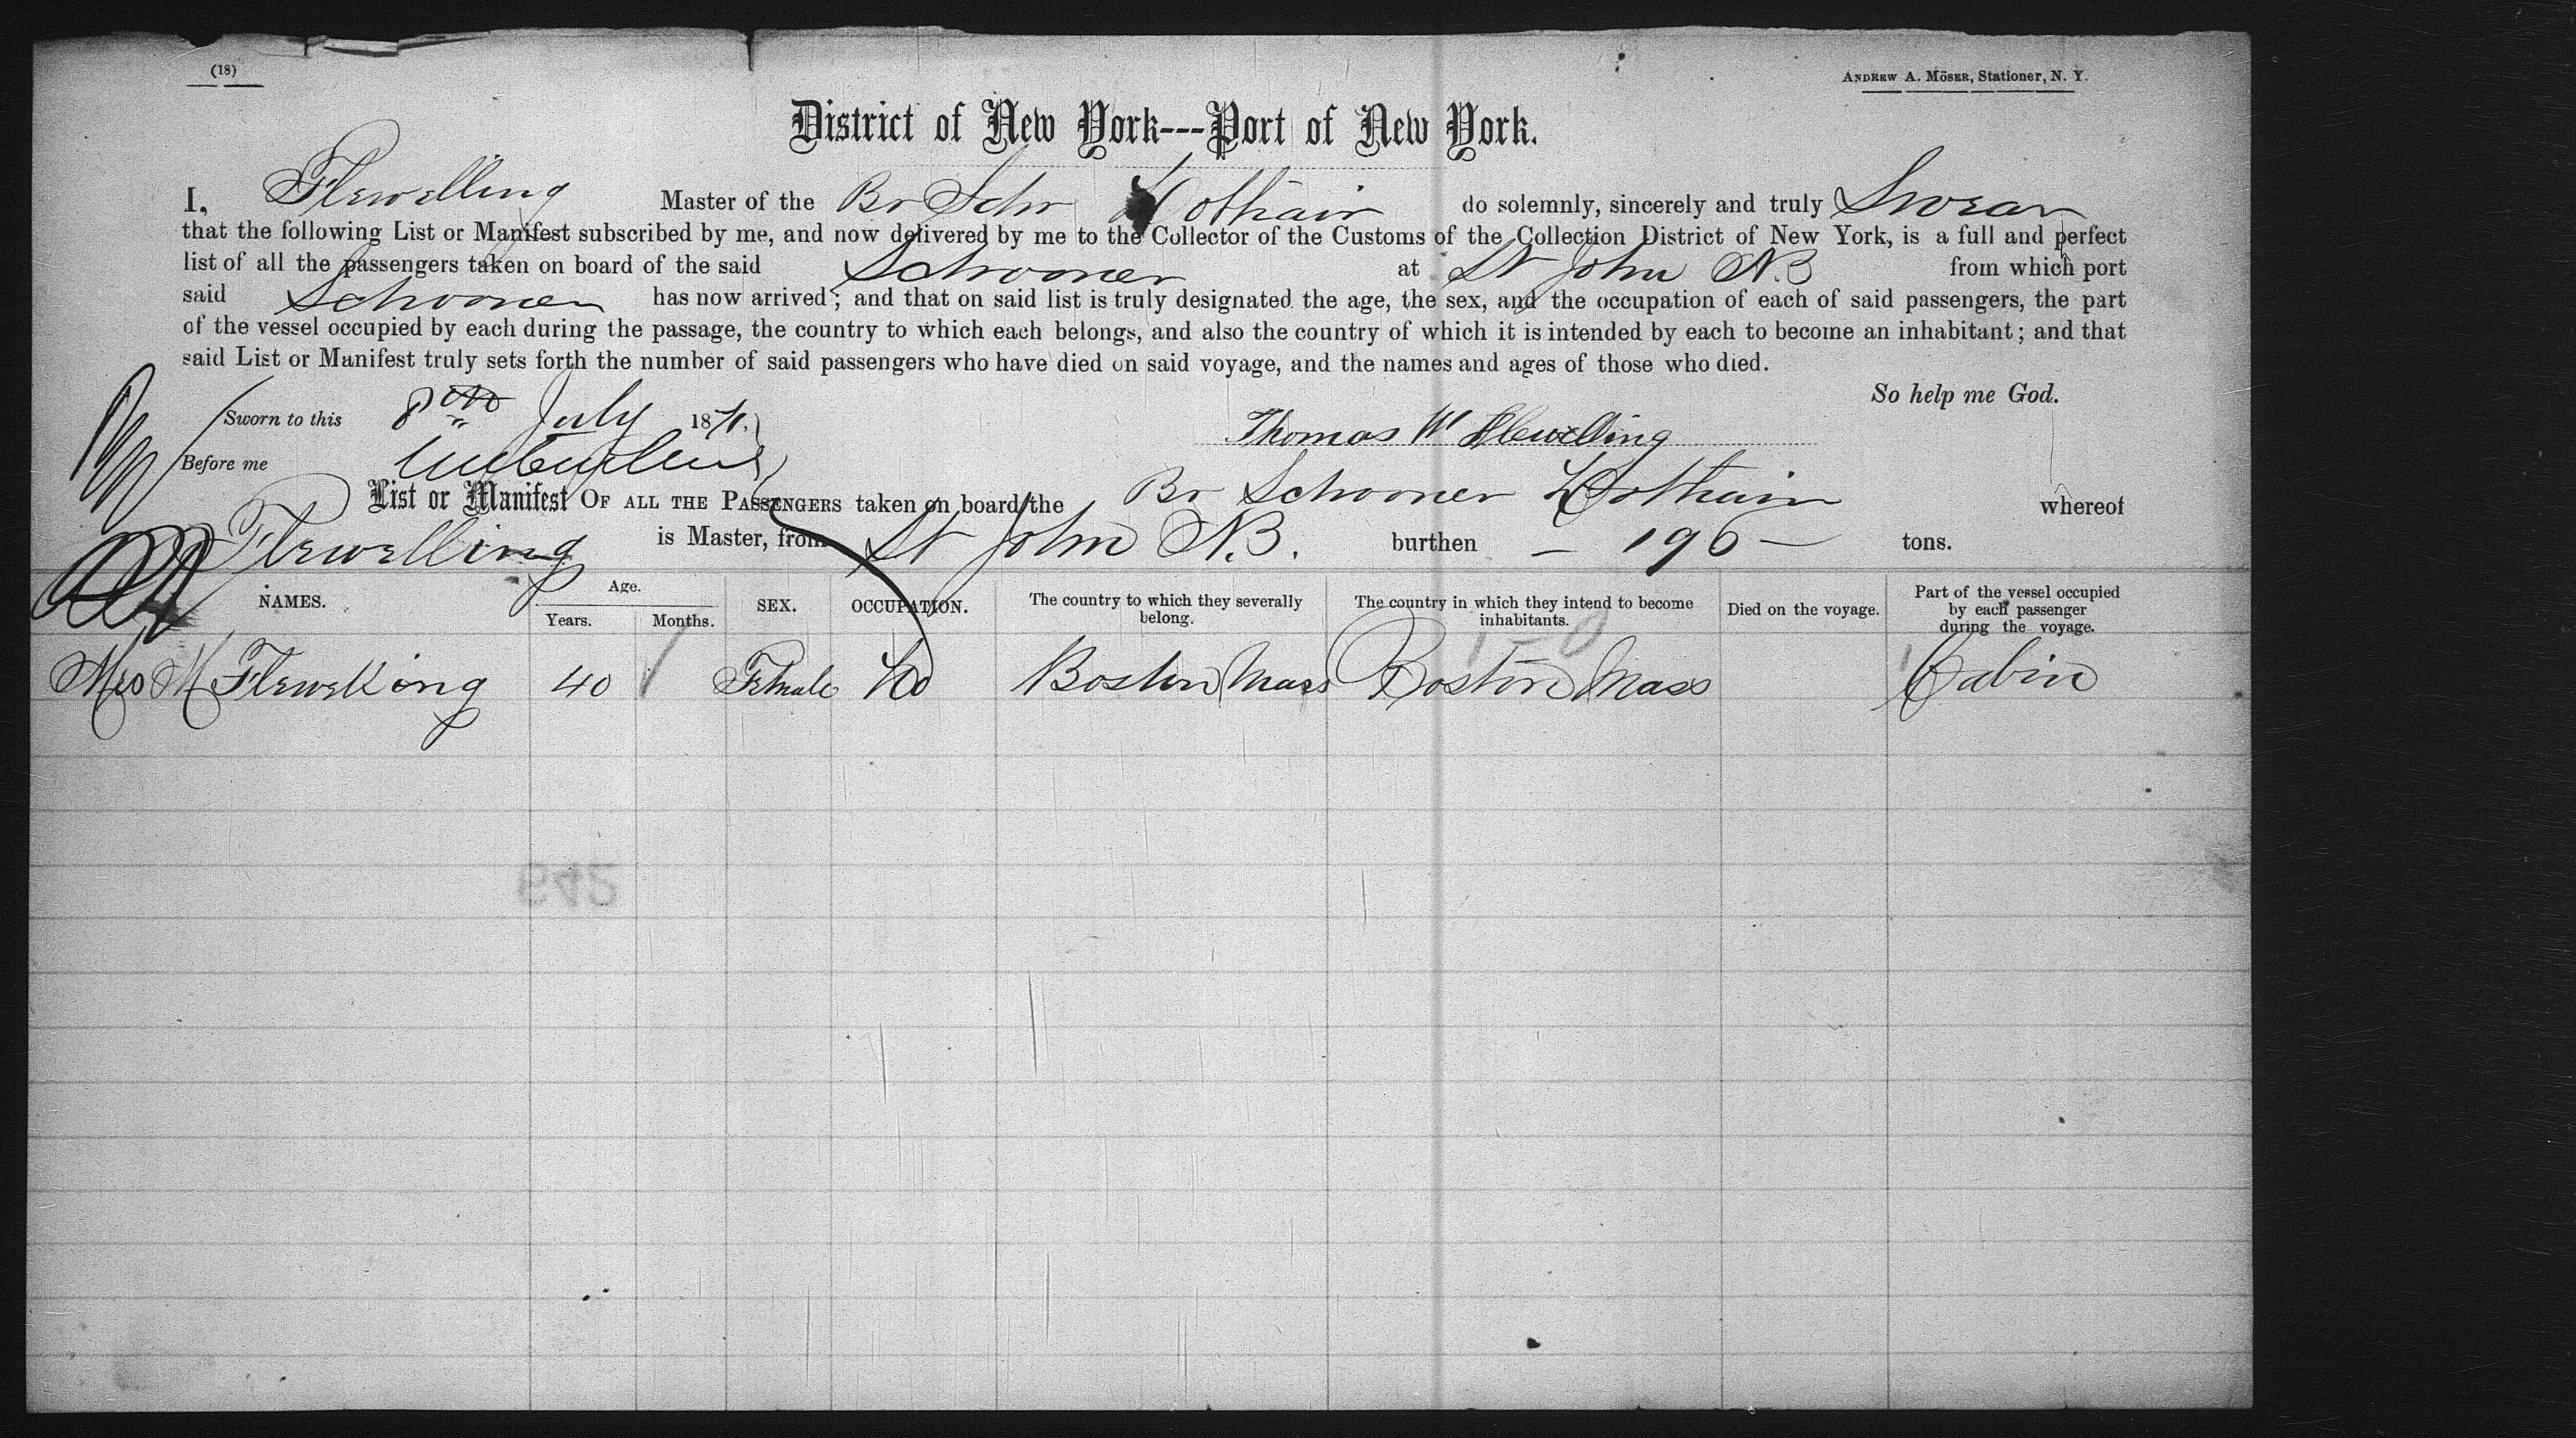 (18)
ANDREW A. MÖSER, Stationer, N. Y.
District of New York---Port of New York.
I, Flewelling Master of the Br Schr Lothair do solemnly, sincerely and truly Swear
that the following List or Manifest subscribed by me, and now delivered by me to the Collector of the Customs of the Collection District of New York, is a full and perfect
list of all the passengers taken on board of the said Schooner at St John N.B from which port
said Schooner has now arrived; and that on said list is truly designated the age, the sex, and the occupation of each of said passengers, the part
of the vessel occupied by each during the passage, the country to which each belongs, and also the country of which it is intended by each to become an inhabitant; and that
said List or Manifest truly sets forth the number of said passengers who have died on said voyage, and the names and ages of those who died.
So help me God.
Sworn to this 8th July 187
Thomas W Flewelling
Before me
List or Manifest OF ALL THE PASSENGERS taken on board the Br Schooner Lothair whereof
Flewelling is Master, from St John N.B. burthen - 196 - tons.
NAMES. Age. Years. Months. SEX. OCCUPATION. The country to which they severally belong. The country in which they intend to become inhabitants. Died on the voyage. Part of the vessel occupied by each passenger during the voyage.
Mrs M Flewelling 40 Female Boston Mass Boston Mass Cabin
642